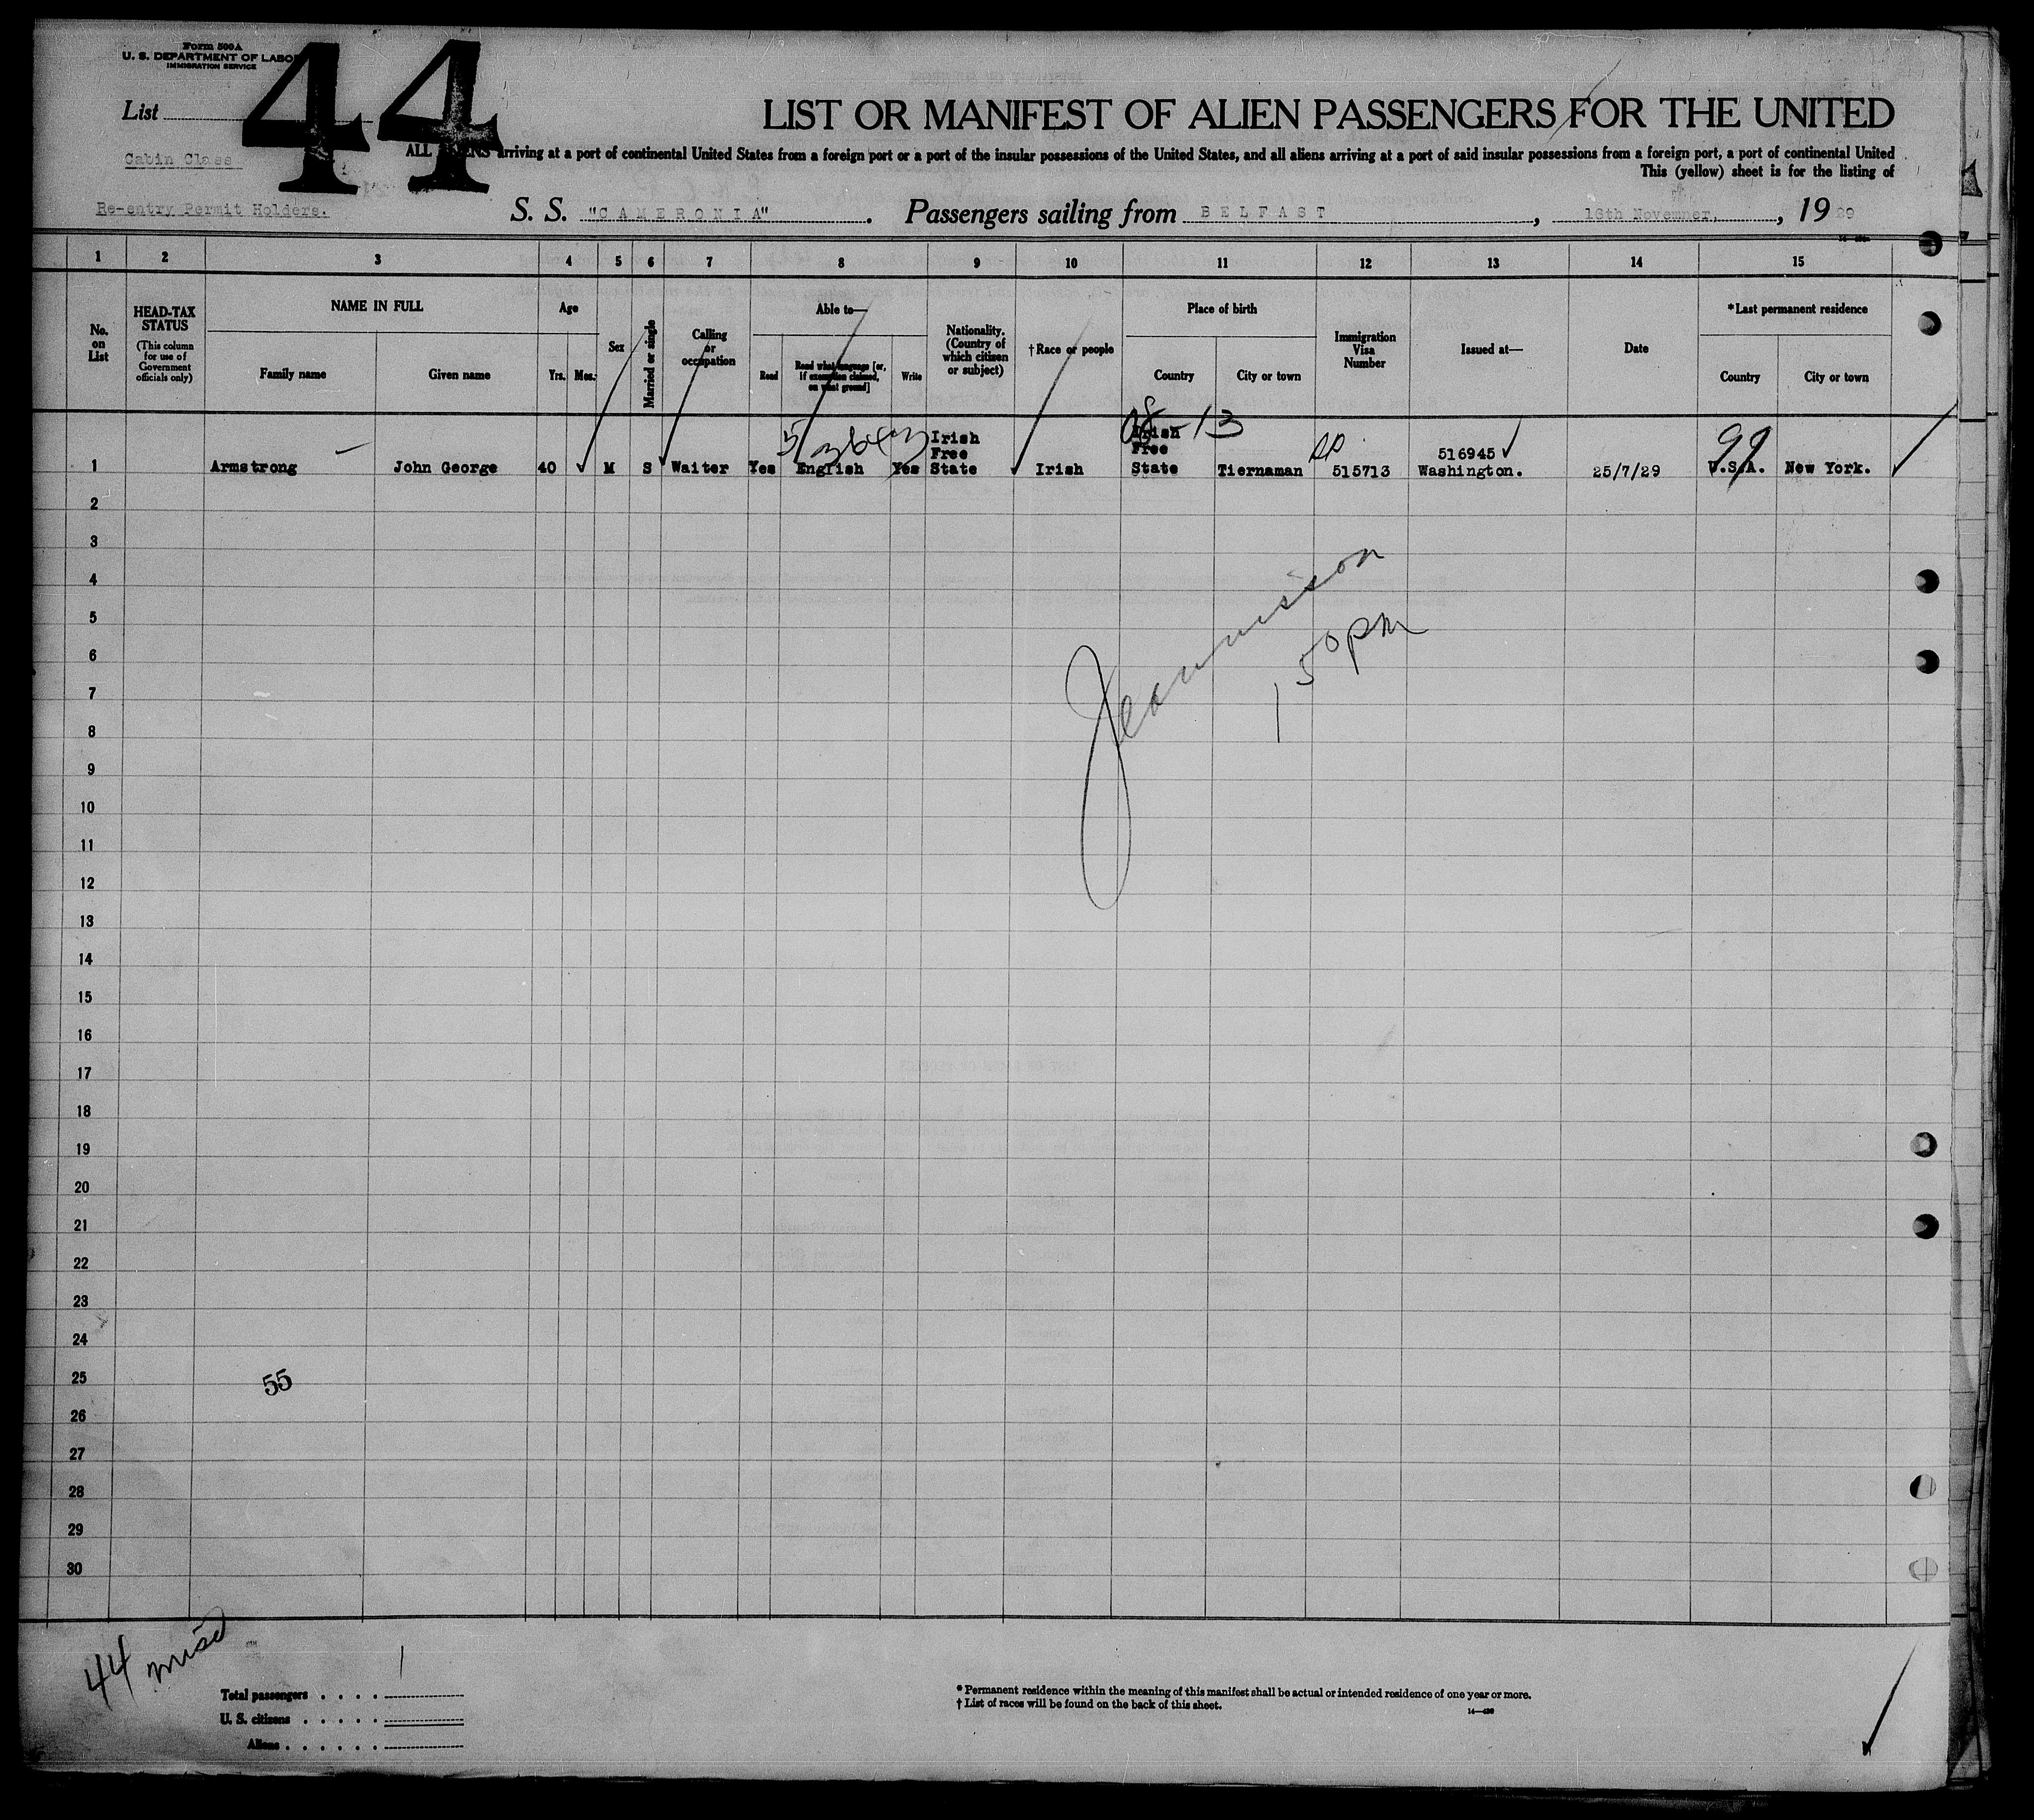 Form 500A
U. S. DEPARTMENT OF LABO
IMMIGRATION SERVICE
44
List
LIST OR MANIFEST OF ALIEN PASSENGERS FOR THE UNITED
Cabin Class
ALL ALIENS arriving at a port of continental United States from a foreign port or a port of the insular possessions of the United States, and all aliens arriving at a port of said insular possessions from a foreign port, a port of continental United
This (yellow) sheet is for the listing of
Re-entry Permit Holders.
S. S. "CAMERONIA". Passengers sailing from BELFAST, 16th November, 1929
1 2 3 4 5 6 7 8 9 10 11 12 13 14 15
No. on List
HEAD-TAX STATUS
(This column for use of Government officials only)
NAME IN FULL
Family name
Given name
Age
Yrs.
Mos.
Sex
Married or single
Calling or occupation
Able to—
Read
Read what language [or, if exemption claimed, on what ground]
Write
Nationality. (Country of which citizen or subject)
† Race or people
Place of birth
Country
City or town
Immigration Visa Number
Issued at—
Date
*Last permanent residence
Country
City or town
1 Armstrong John George 40 M S Waiter Yes English Yes Irish Free State Irish Irish Free State Tiernaman 515713 516945 Washington. 25/7/29 U.S.A. New York.
13
99
2
3
4
5
6
7
8
9
10
11
12
13
14
15
16
17
18
19
20
21
22
23
24
25
26
27
28
29
30
1 50 pm
55
44 misd
1
Total passengers
U. S. citizens
Aliens
* Permanent residence within the meaning of this manifest shall be actual or intended residence of one year or more.
† List of races will be found on the back of this sheet.
14—430